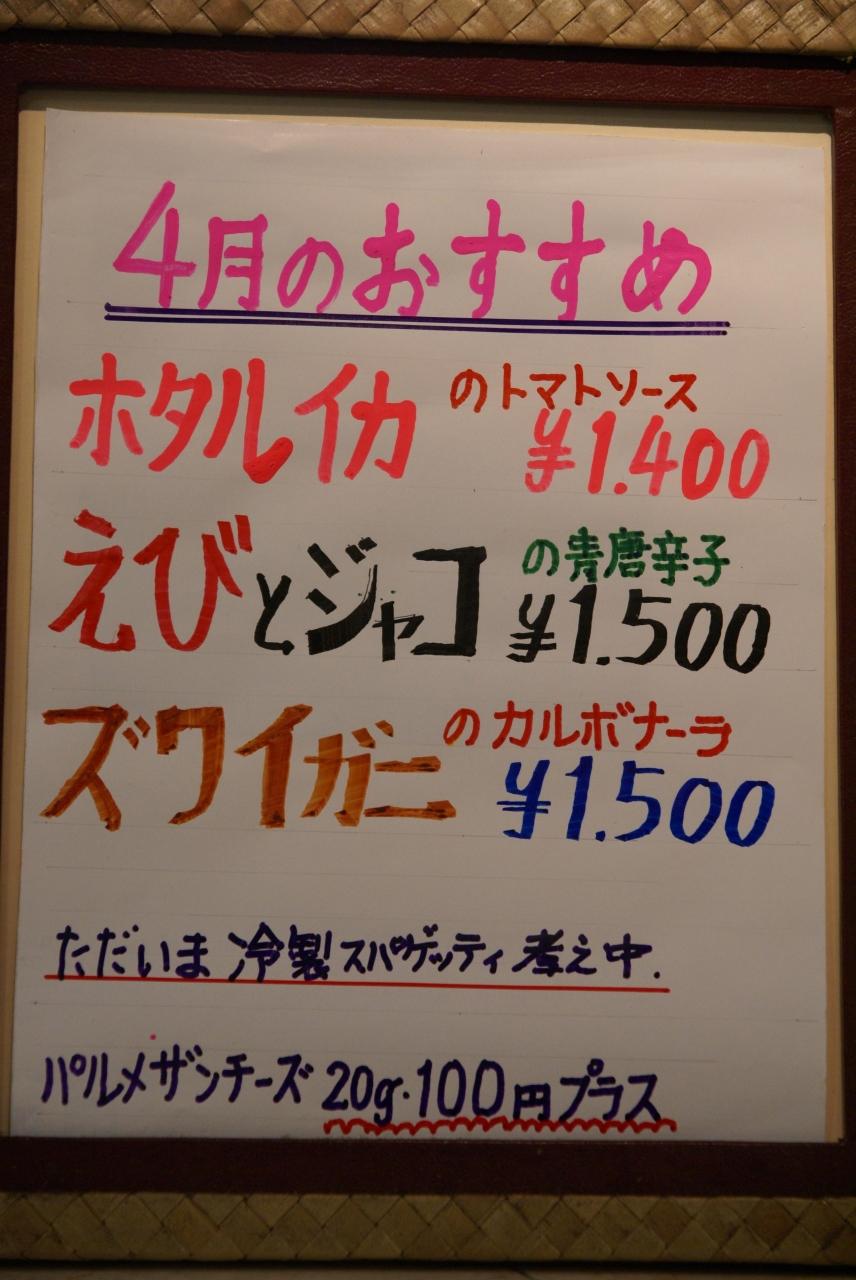 4月のおすすめ
ホタルイカのトマトソース
¥1.400
えびとジャコの青唐辛子
¥1.500
ズワイガニのカルボナーラ
¥1.500
ただいま冷製スパゲッティ考え中.
パルメザンチーズ20g・100円プラス